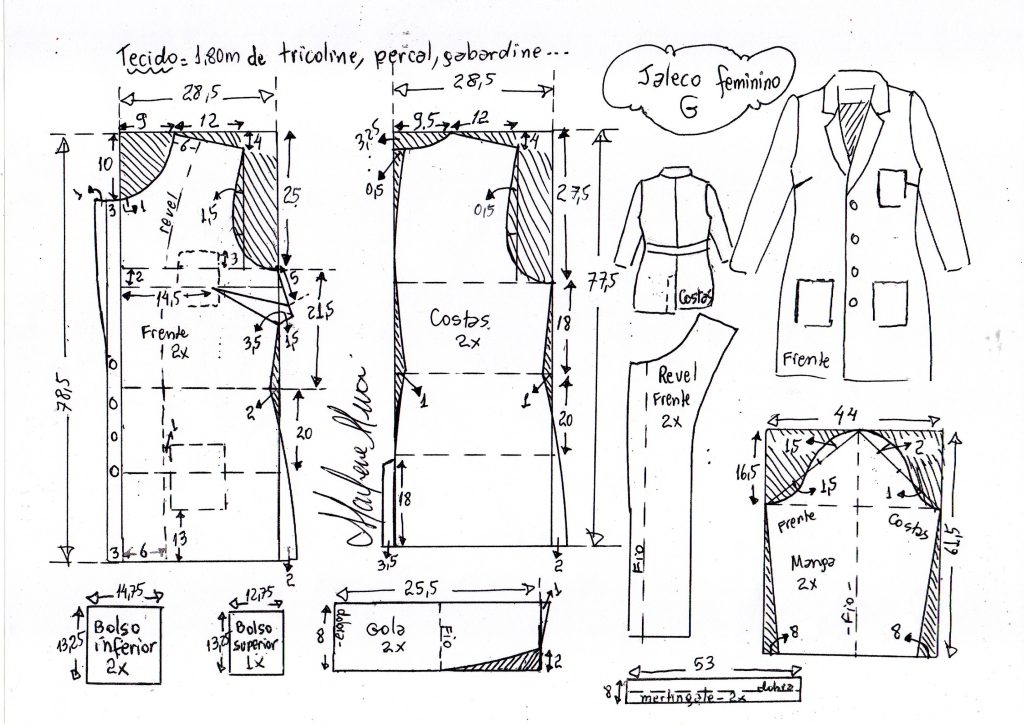 Tecido = 1,80m de tricoline, percal, gabardine...
Jaleco feminino
G
28,5
9
12
4
10
6
3
1
1
revel
1,5
25
3
2
14,5
5
21,5
3,5
1,5
Frente
2x
78,5
2
20
1
13
3
6
2
28,5
9,5
12
4
3,25
0,5
0,5
27,5
77,5
Costas
2x
18
1
1
20
18
3,5
2
Marlene Mukai
Costas
Frente
Revel
Frente
2x
Fio
44
16,5
1,5
2
1,5
1
Frente
Costas
Manga
2x
-Fio-
61,5
8
8
14,75
13,25
Bolso
inferior
2x
12,75
13,25
Bolso
superior
1x
25,5
8
dobra
Gola
2x
Fio
1
2
53
8
dobra
martingale - 2x